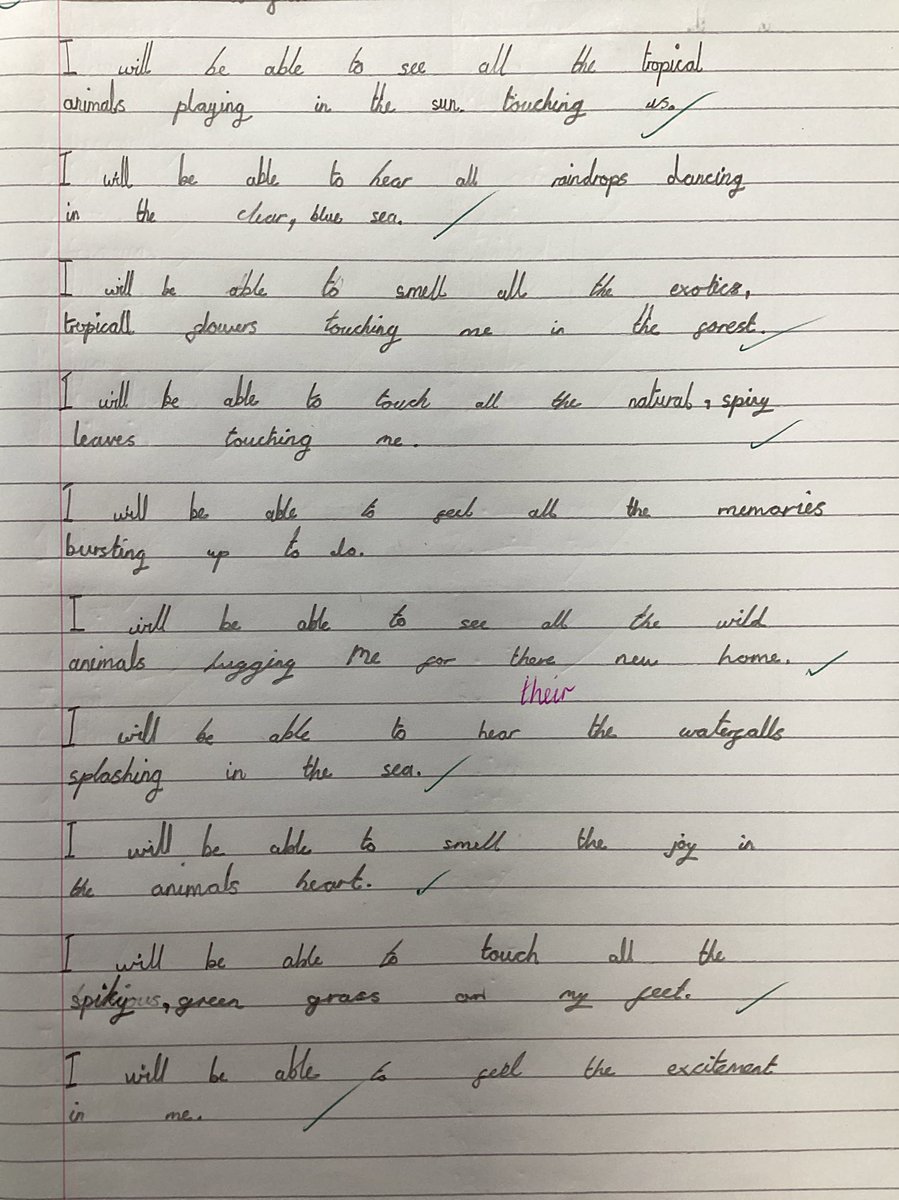 I will be able to see all the tropical
animals playing in the sun. touching us.
I will be able to hear all raindrops dancing
in the clear, blue sea.
I will be able to smell all the exotics,
tropicall flowers touching me in the forest.
I will be able to touch all the natural, spiny
leaves touching me.
I will be able to feel all the memories
bursting up to do.
I will be able to see all the wild
animals hugging Me for there new home.
their
I will be able to hear the waterfalls
splashing in the sea.
I will be able to smell the joy in
the animals heart.
I will be able to touch all the
green grass on my feet.
I will be able to feel the excitement
in me.